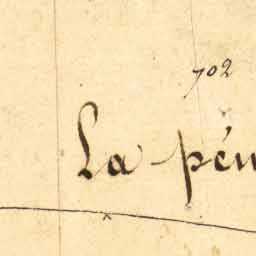 702
La pén